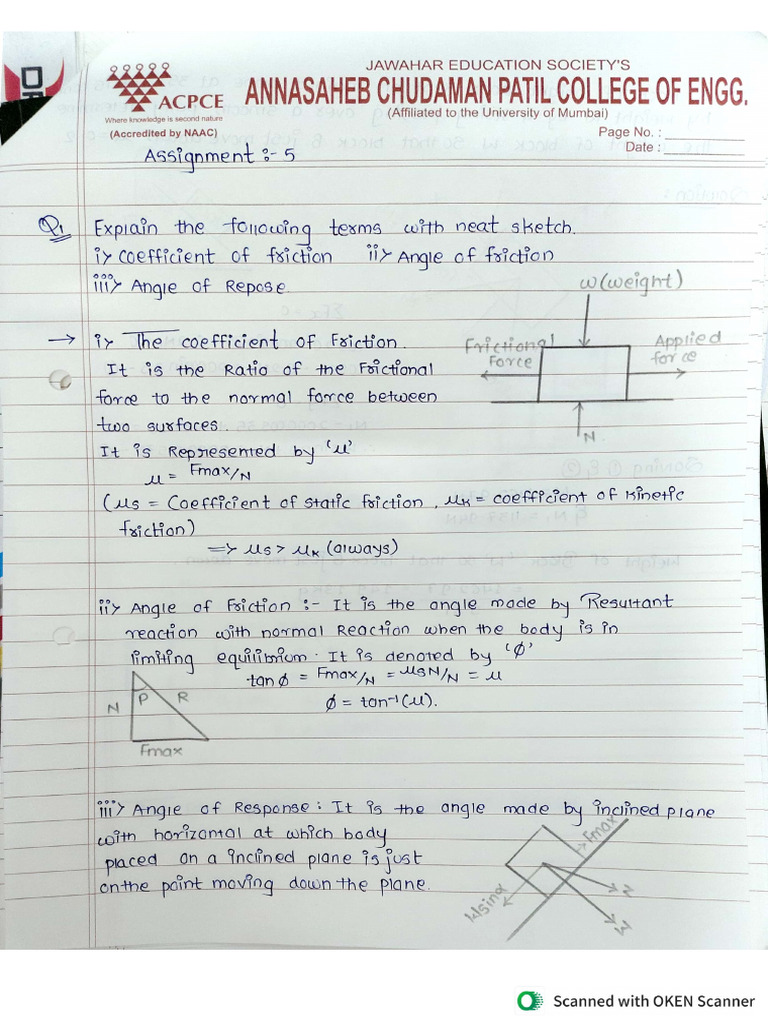 JAWAHAR EDUCATION SOCIETY'S
ANNASAHEB CHUDAMAN PATIL COLLEGE OF ENGG.
(Affiliated to the University of Mumbai)
ACPCE
Where knowledge is second nature
(Accredited by NAAC)
Page No. :
Date :
Assignment :- 5
Q1 Explain the following terms with neat sketch.
i> Coefficient of friction ii> Angle of friction
iii> Angle of Repose.
W (weight)
→ i> The coefficient of Friction.
Frictional Force
Applied force
It is the Ratio of the Frictional
force to the normal force between
two surfaces.
N
It is Represented by 'μ'
μ = Fmax/N
(μs = Coefficient of static friction, μk = coefficient of kinetic
friction)
=> μs > μk (always)
ii> Angle of Friction :- It is the angle made by Resultant
reaction with normal Reaction when the body is in
limiting equilibrium. It is denoted by 'ϕ'
tanϕ = Fmax/N = μsN/N = μ
ϕ = tan⁻¹(μ).
N P R
Fmax
iii> Angle of Response : It is the angle made by inclined plane
with horizontal at which body
placed on a inclined plane is just
on the point moving down the plane.
Fmax
Wsinα
N
W
Scanned with OKEN Scanner